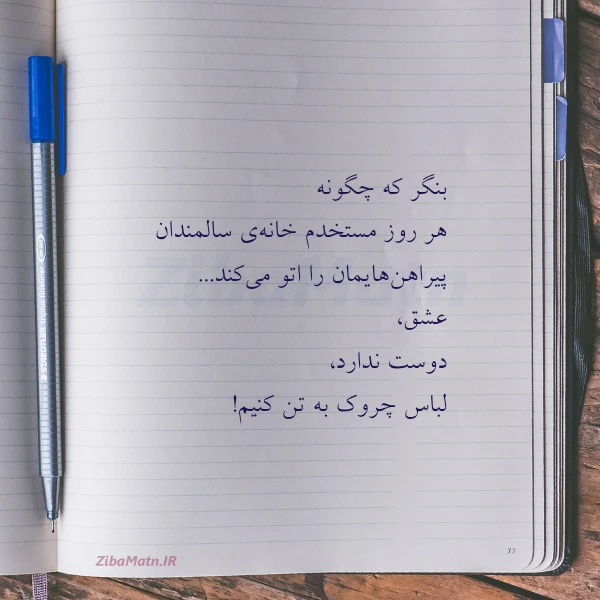 بنگر که چگونه
هر روز مستخدم خانه‌ی سالمندان
پیراهن‌هایمان را اتو می‌کند...
عشق،
دوست ندارد،
لباس چروک به تن کنیم!
ZibaMatn.IR
77